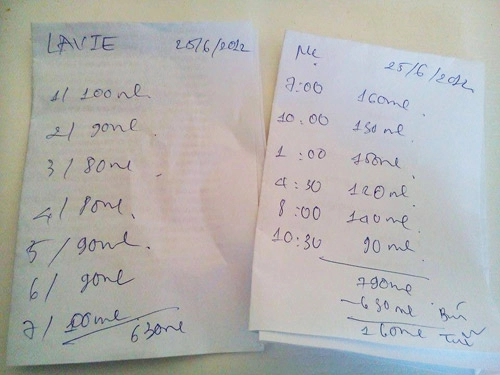 LAVIE 25/6/2012
1/ 100ml.
2/ 90ml.
3/ 80ml.
4/ 80ml.
5/ 90ml.
6/ 90ml
7/ 100ml
630ml
25/6/2012
7:00 160ml.
10:00 130ml.
1:00 150ml.
4:30 120ml.
8:00 140ml.
10:30 90ml.
790ml
-630ml
160ml